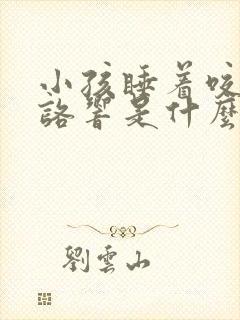 小孩睡着咬
詻響是什麼
劉雲山